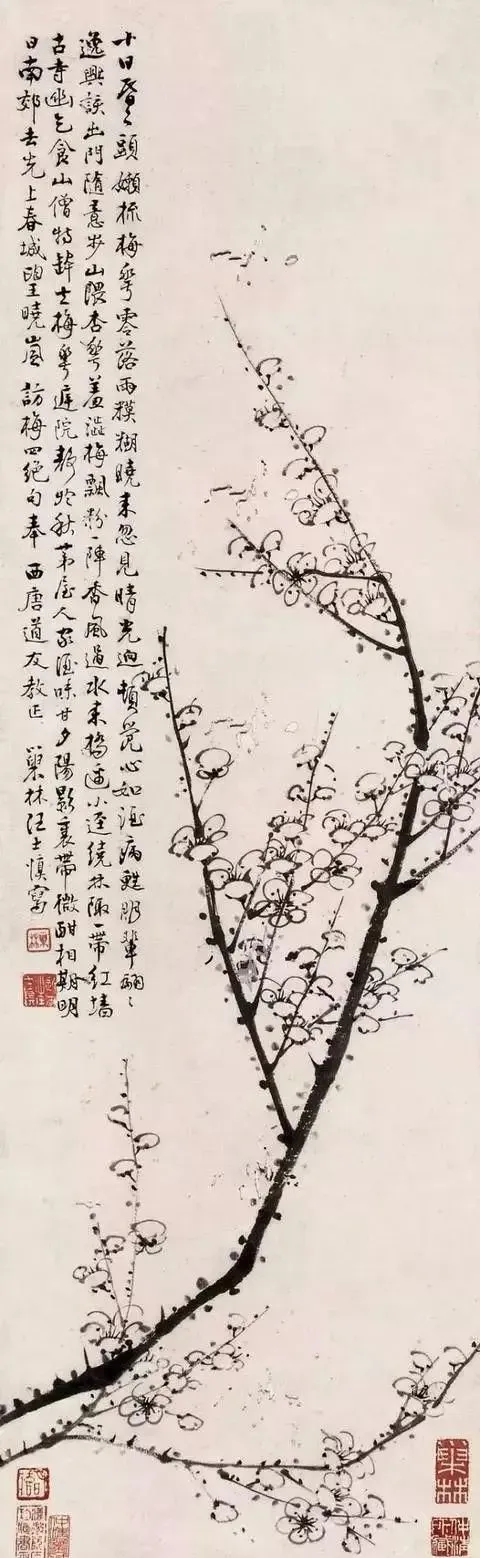 十日昏〻頭嬾梳梅華零落雨糢糊曉來忽見晴光迥頓覺心如酒病甦朋輩翩〻
逸興諠出門隨意步山隈杏華羞澀梅飄粉一陣香風過水來橋邊小逕繞林陬一帶紅墻
古寺幽乞食山僧持缽去梅華庭院靜於秋茅屋人家酒味甘夕陽影裏帶微酣相期明
日南郊去先上春城望曉嵐 訪梅四絕句奉 西唐道友教正 巢林汪士慎寫
巢林